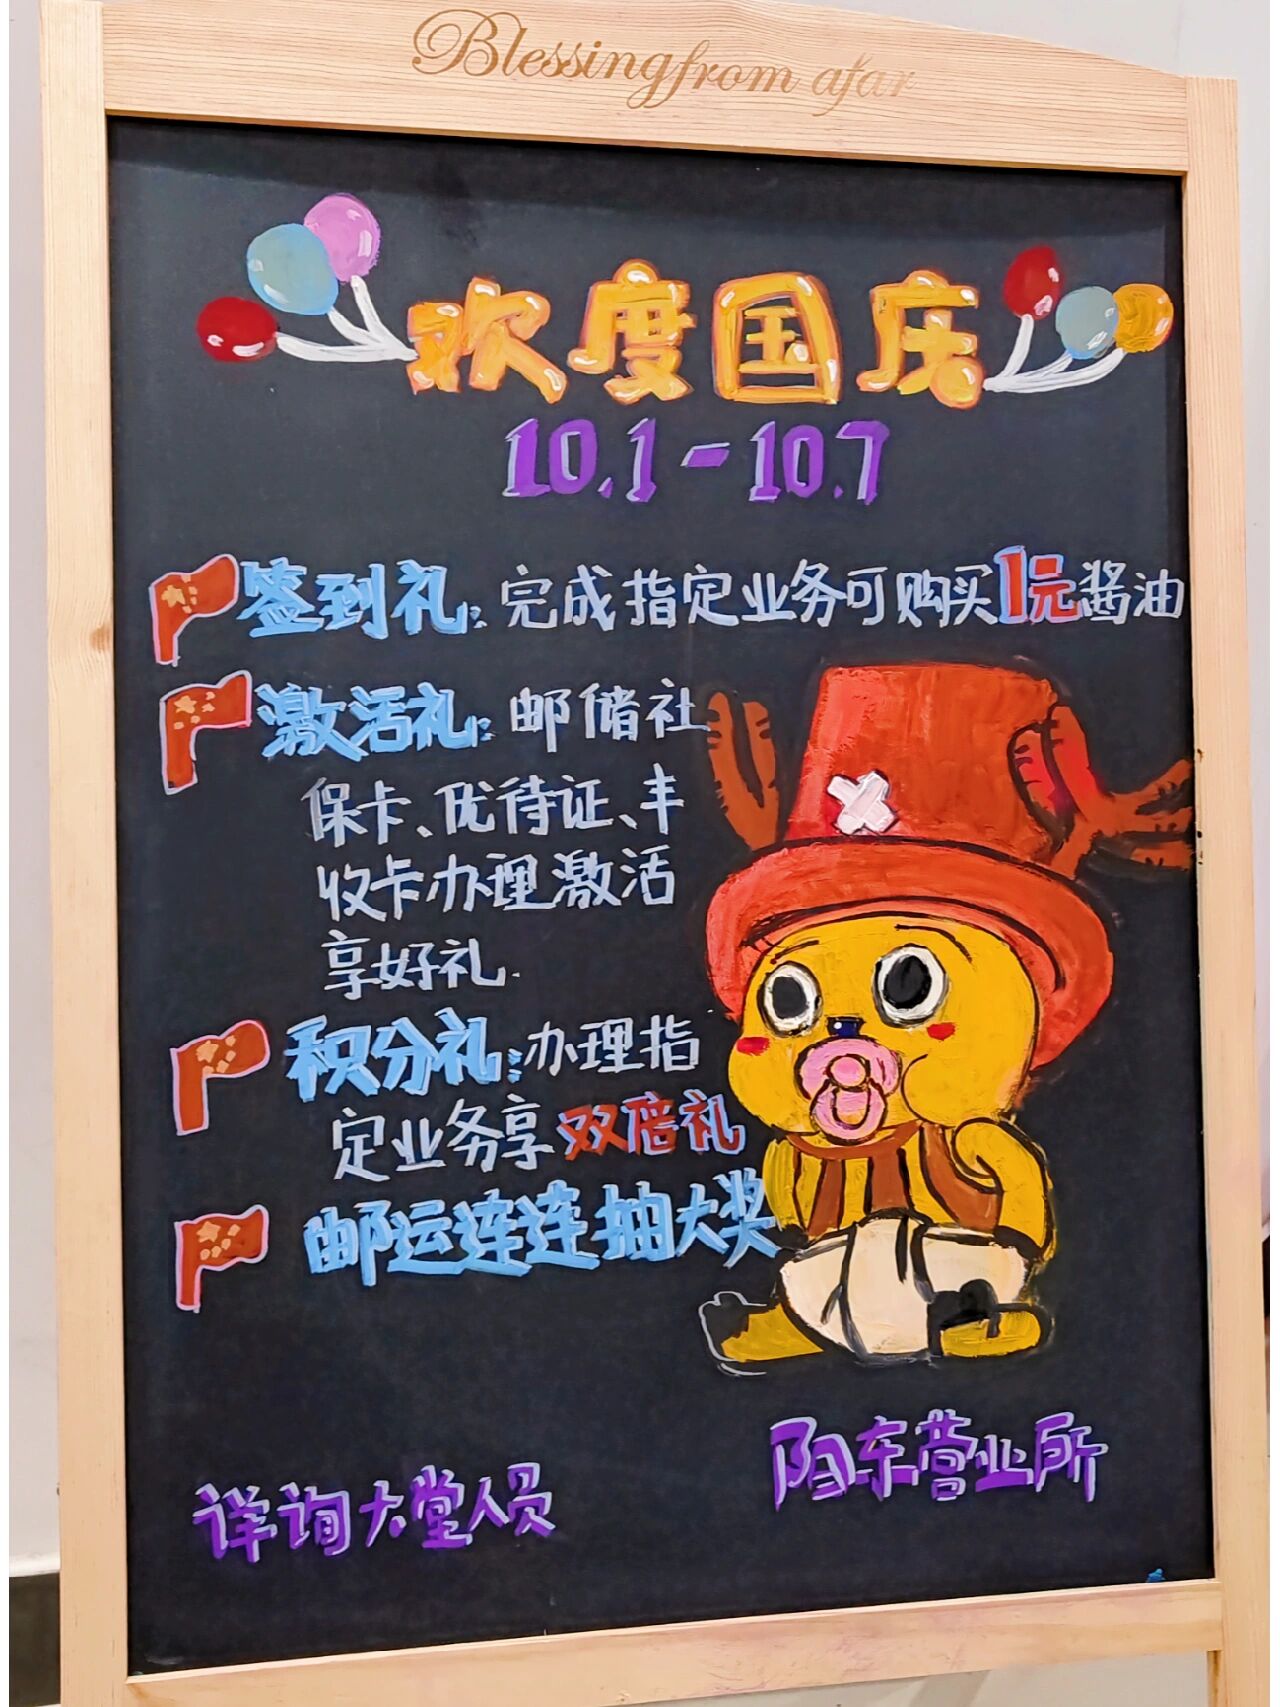 Blessing from afar
欢度国庆
10.1-10.7
签到礼:完成指定业务可购买1元酱油
激活礼:邮储社
保卡、优待证、丰
收卡办理激活
享好礼.
积分礼:办理指
定业务享双倍礼
邮运连连抽大奖
详询大堂人员
阳东营业所